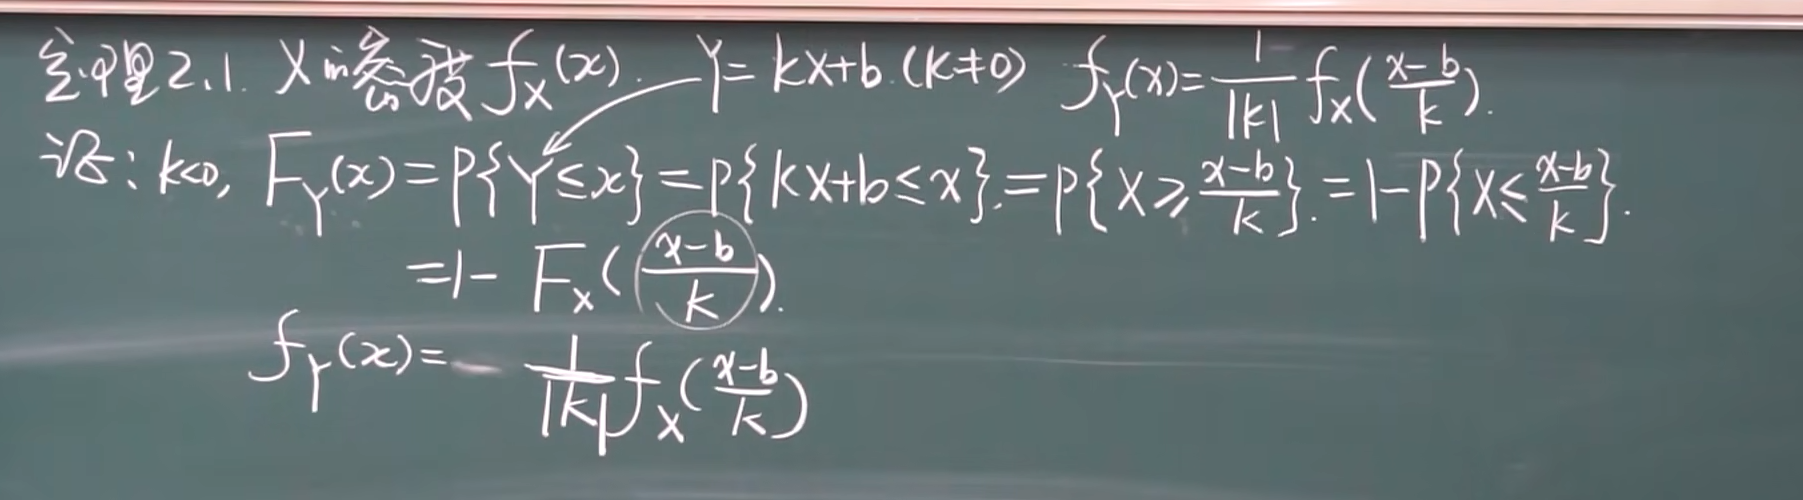 定理2.1. X的密度 f_X(x). Y=kX+b.(k≠0) f_Y(x)=\frac{1}{|k|}f_X(\frac{x-b}{k}).
证: k<0, F_Y(x)=P{Y≤x}=P{kX+b≤x}.=P{X≥\frac{x-b}{k}}.=1-P{X≤\frac{x-b}{k}}.
=1-F_X(\frac{x-b}{k}).
f_Y(x)=\frac{1}{|k|}f_X(\frac{x-b}{k})